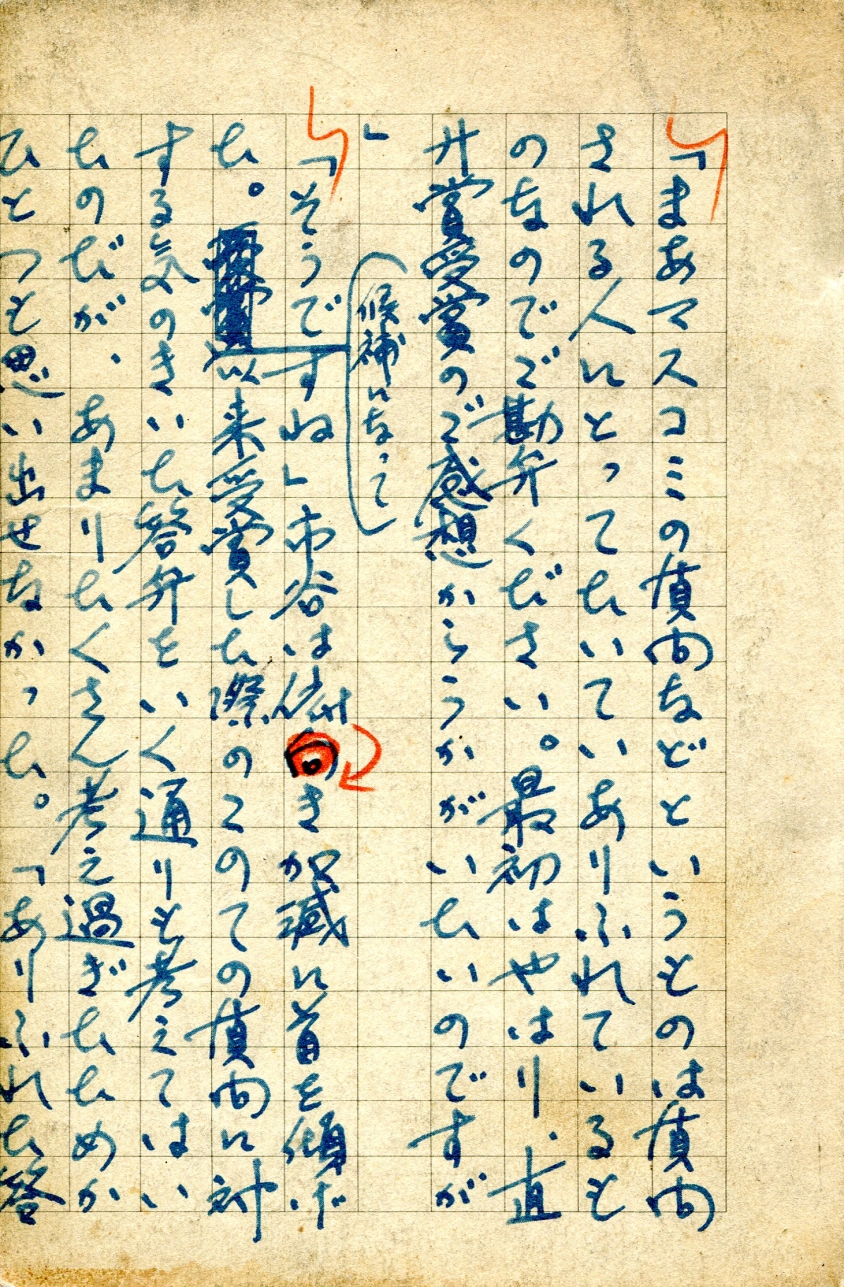 「まあマスコミの質問などというものは質問
される人にとってたいていありふれているも
のなのでご勘弁ください。最初はやはり、直
廾賞受賞のご感想からうかがいたいのですが
」
候補になって
「そうですね」市谷は俯向き加減に首を傾げ
た。以来受賞した際のこのての質問に対
する気のきいた答弁をいく通りも考えてはい
たのだが、あまりたくさん考え過ぎたためか
ひとつも思い出せなかった。「ありふれた答